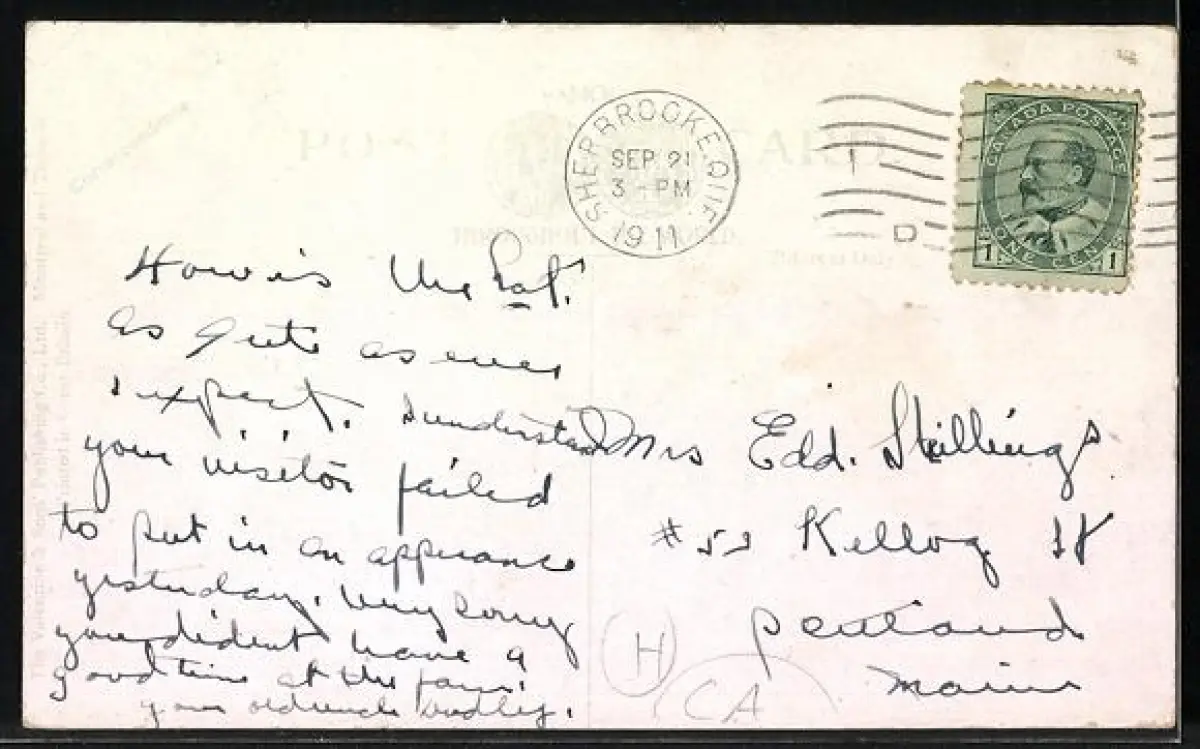 POST CARD
SHERBROOKE, QUE.
SEP 21
3 - PM
1911
D
CANADA POSTAGE
ONE CENT
1 1
How is the
as cute as ever
I expect. I understand
your visitor failed
to put in an appearance
yesterday. Very sorry
you dident have a
good time at the
your
Mrs Edd. Skillings
#53 Kellog St
Portland
Maine
H
CA